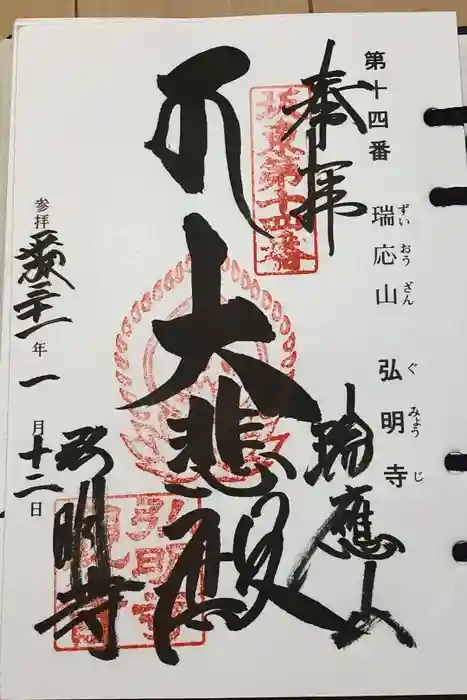 第十四番 瑞応山 弘明寺
ずいおうざん ぐみょうじ
奉拝
坂東第十四番
瑞應山
大悲殿
弘明寺
参拝 平成三十一年一月十二日
弘明寺